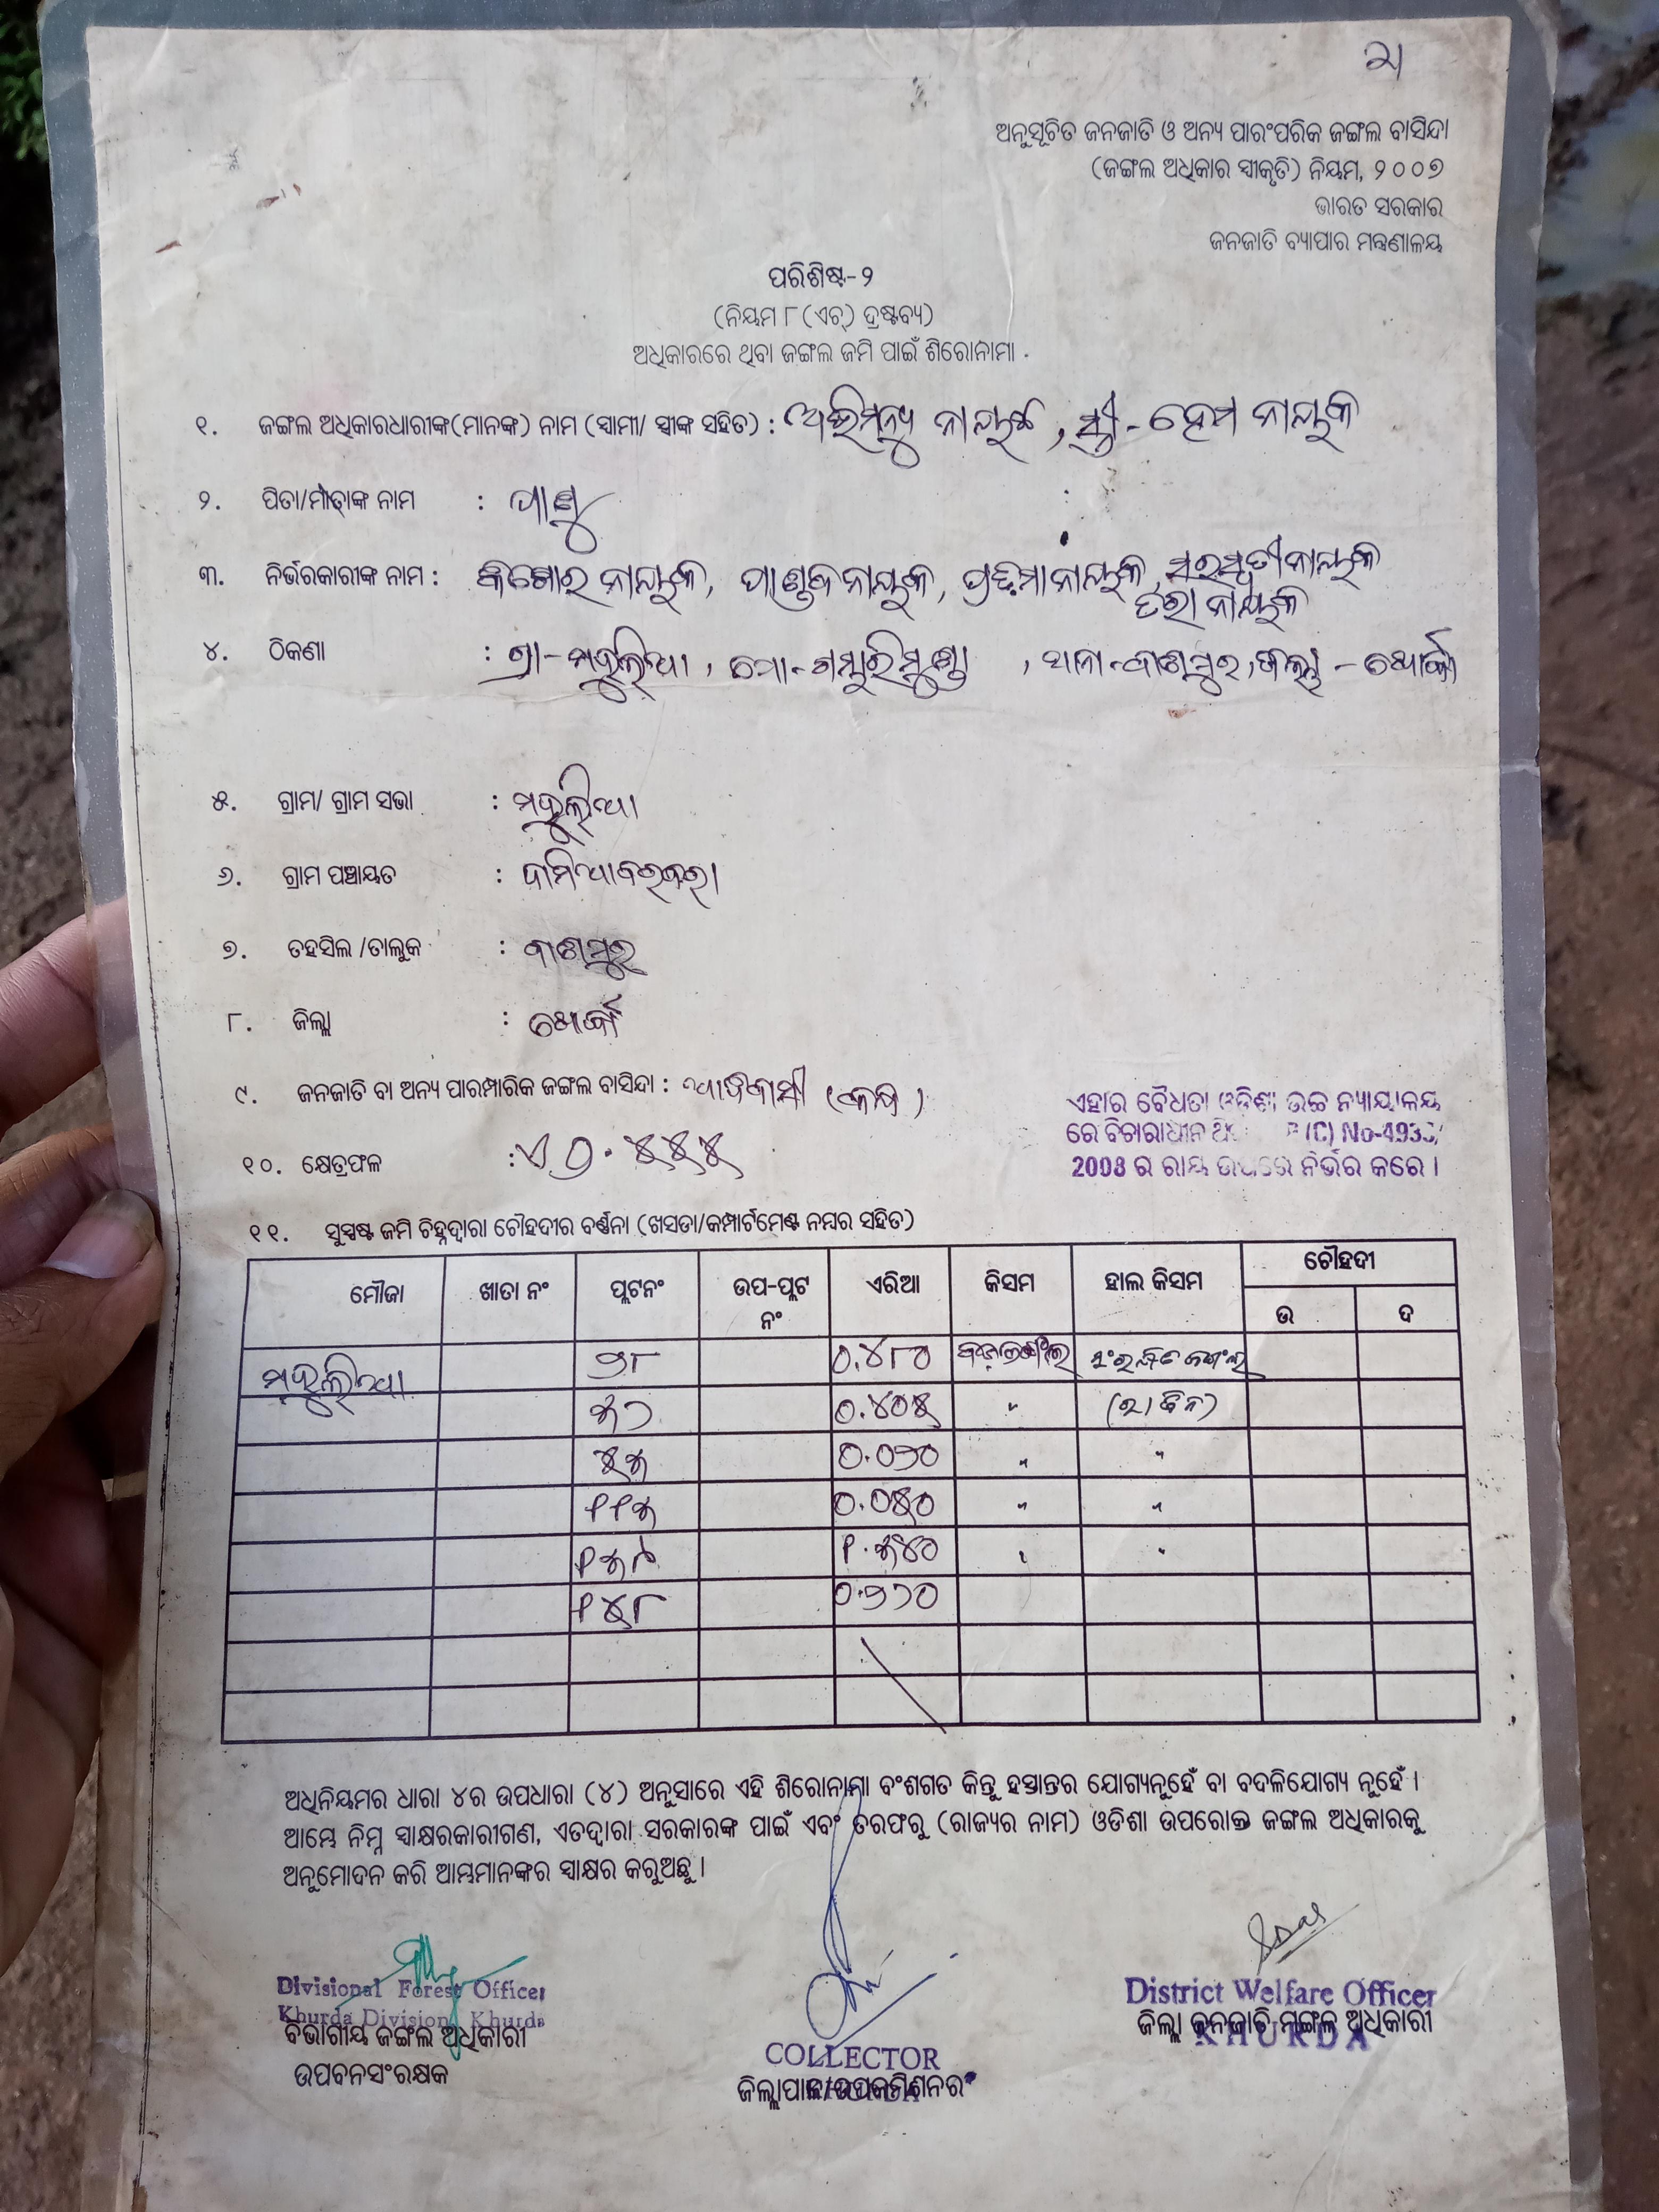 ୨।
ଅନୁସୂଚିତ ଜନଜାତି ଓ ଅନ୍ୟ ପାରଂପରିକ ଜଙ୍ଗଲ ବାସିନ୍ଦା
(ଜଙ୍ଗଲ ଅଧିକାର ସ୍ୱୀକୃତି) ନିୟମ, ୨୦୦୭
ଭାରତ ସରକାର
ଜନଜାତି ବ୍ୟାପାର ମନ୍ତ୍ରଣାଳୟ
ପରିଶିଷ୍ଟ-୨
(ନିୟମ ୮ (ଏଚ୍) ଦ୍ରଷ୍ଟବ୍ୟ)
ଅଧିକାରରେ ଥିବା ଜଙ୍ଗଲ ଜମି ପାଇଁ ଶିରୋନାମା .
୧. ଜଙ୍ଗଲ ଅଧିକାରଧାରୀଙ୍କ(ମାନଙ୍କ) ନାମ (ସ୍ୱାମୀ/ ସ୍ତ୍ରୀଙ୍କ ସହିତ) : ଅଭିମନ୍ୟୁ ନାୟକ, ସ୍ତ୍ରୀ - ହେମ ନାୟକ
୨. ପିତା/ମାତାଙ୍କ ନାମ : ପାଣୁ
୩. ନିର୍ଭରକାରୀଙ୍କ ନାମ : କିଶୋର ନାୟକ, ପାଣ୍ଡବ ନାୟକ, ନାୟକ, ସରସ୍ୱତୀ ନାୟକ
ନାୟକ
୪. ଠିକଣା : ଗ୍ରା - ମହୁଲିଆ, ପୋ - ଗମ୍ଭାରିମୁଣ୍ଡା, ଥାନା - ବାଣପୁର, ଜିଲ୍ଲା - ଖୋର୍ଦ୍ଧା
୫. ଗ୍ରାମ/ ଗ୍ରାମ ସଭା : ମହୁଲିଆ
୬. ଗ୍ରାମ ପଞ୍ଚାୟତ : ଦାମିଆବରବରା
୭. ତହସିଲ /ତାଲୁକ : ବାଣପୁର
୮. ଜିଲ୍ଲା : ଖୋର୍ଦ୍ଧା
୯. ଜନଜାତି ବା ଅନ୍ୟ ପାରମ୍ପାରିକ ଜଙ୍ଗଲ ବାସିନ୍ଦା : ଆଦିବାସୀ (କନ୍ଧ)
ଏହାର ବୈଧତା ଓଡ଼ିଶା ଉଚ୍ଚ ନ୍ୟାୟାଳୟ
ରେ ବିଚାରାଧୀନ (C) No-4933/
2008 ର ରାୟ ଉପରେ ନିର୍ଭର କରେ ।
୧୦. କ୍ଷେତ୍ରଫଳ : ଏ ୦.୫୫୫
୧୧. ସୁସ୍ପଷ୍ଟ ଜମି ଚିହ୍ନଦ୍ୱାରା ଚୌହଦୀର ବର୍ଣ୍ଣନା (ଖସଡା/କମ୍ପାର୍ଟମେଣ୍ଟ ନମ୍ବର ସହିତ)
ମୌଜା ଖାତା ନଂ ପ୍ଲଟନଂ ଉପ-ପ୍ଲଟ ନଂ ଏରିଆ କିସମ ହାଲ କିସମ ଚୌହଦୀ
ଉ ଦ
ମହୁଲିଆ ୬୮ ୦.୪୮୦ ସଂରକ୍ଷିତ ଜଙ୍ଗଲ
୩୨ ୦.୪୦୫ " (ରାବିନ)
୫୩ ୦.୦୭୦ " "
୧୧୩ ୦.୦୫୦ " "
୧୩୯ "
୧୪୮
ଅଧିନିୟମର ଧାରା ୪ର ଉପଧାରା (୪) ଅନୁସାରେ ଏହି ଶିରୋନାମା ବଂଶଗତ କିନ୍ତୁ ହସ୍ତାନ୍ତର ଯୋଗ୍ୟନୁହେଁ ବା ବଦଳିଯୋଗ୍ୟ ନୁହେଁ ।
ଆମ୍ଭେ ନିମ୍ନ ସ୍ୱାକ୍ଷରକାରୀଗଣ, ଏତଦ୍ୱାରା ସରକାରଙ୍କ ପାଇଁ ଏବଂ ତରଫରୁ (ରାଜ୍ୟର ନାମ) ଓଡିଶା ଉପରୋକ୍ତ ଜଙ୍ଗଲ ଅଧିକାରକୁ
ଅନୁମୋଦନ କରି ଆମ୍ଭମାନଙ୍କର ସ୍ୱାକ୍ଷର କରୁଅଛୁ ।
Divisional Forest Officer
Khurda Division, Khurda
ବିଭାଗୀୟ ଜଙ୍ଗଲ ଅଧିକାରୀ
ଉପବନସଂରକ୍ଷକ
COLLECTOR
ଜିଲ୍ଲାପାଳ/ଉପକମିଶନର
District Welfare Officer
ଜିଲ୍ଲା ଜନଜାତି ମଙ୍ଗଳ ଅଧିକାରୀ
KHURDA